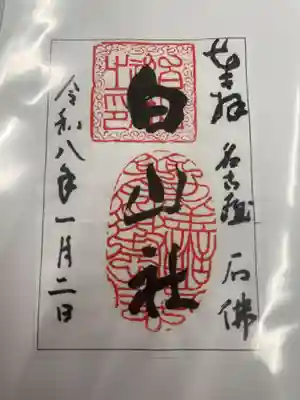 奉拝 名古屋 石佛
白山社
令和八年一月二日